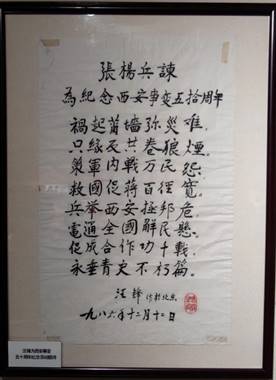 張楊兵諫
為紀念西安事变五拾周年
禍起萧墙弥災难
只缘反共卷狼煙
策軍内戰万民怨
救國促蒋百徑寬
兵举西安拯邦危
電通全國解民懸
促成合作功十載
永垂青史不朽篇
汪鋒 作於北京
一九八六年十二月十二日